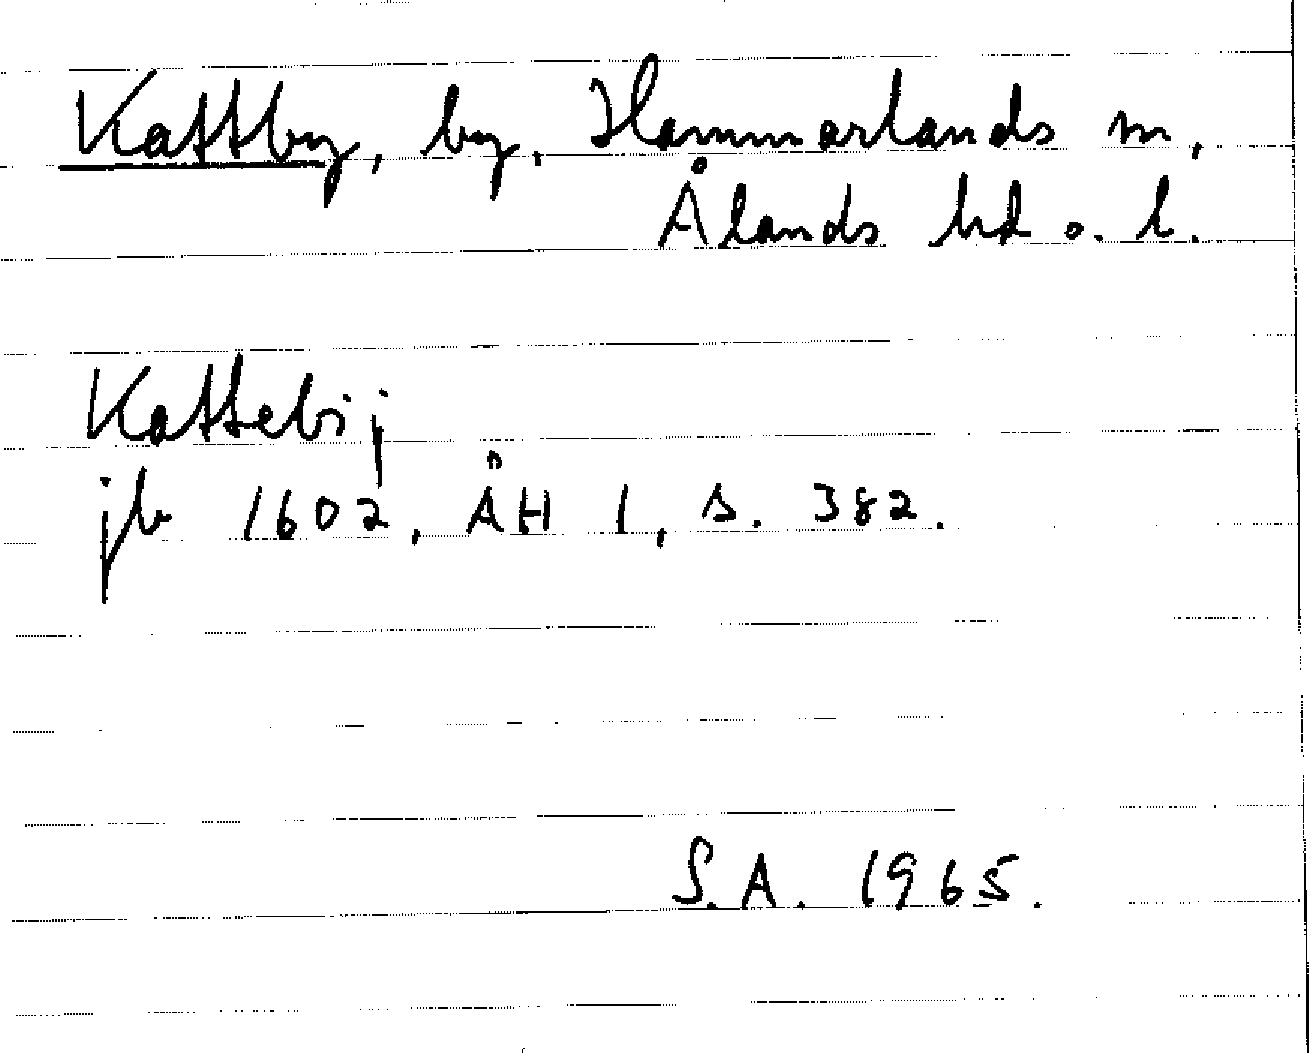 Kattby, by, Hammarlands sn,
Ålands hd o. l.
Kattebij
jb 1602, ÅH 1, s. 382.
S.A. 1965.